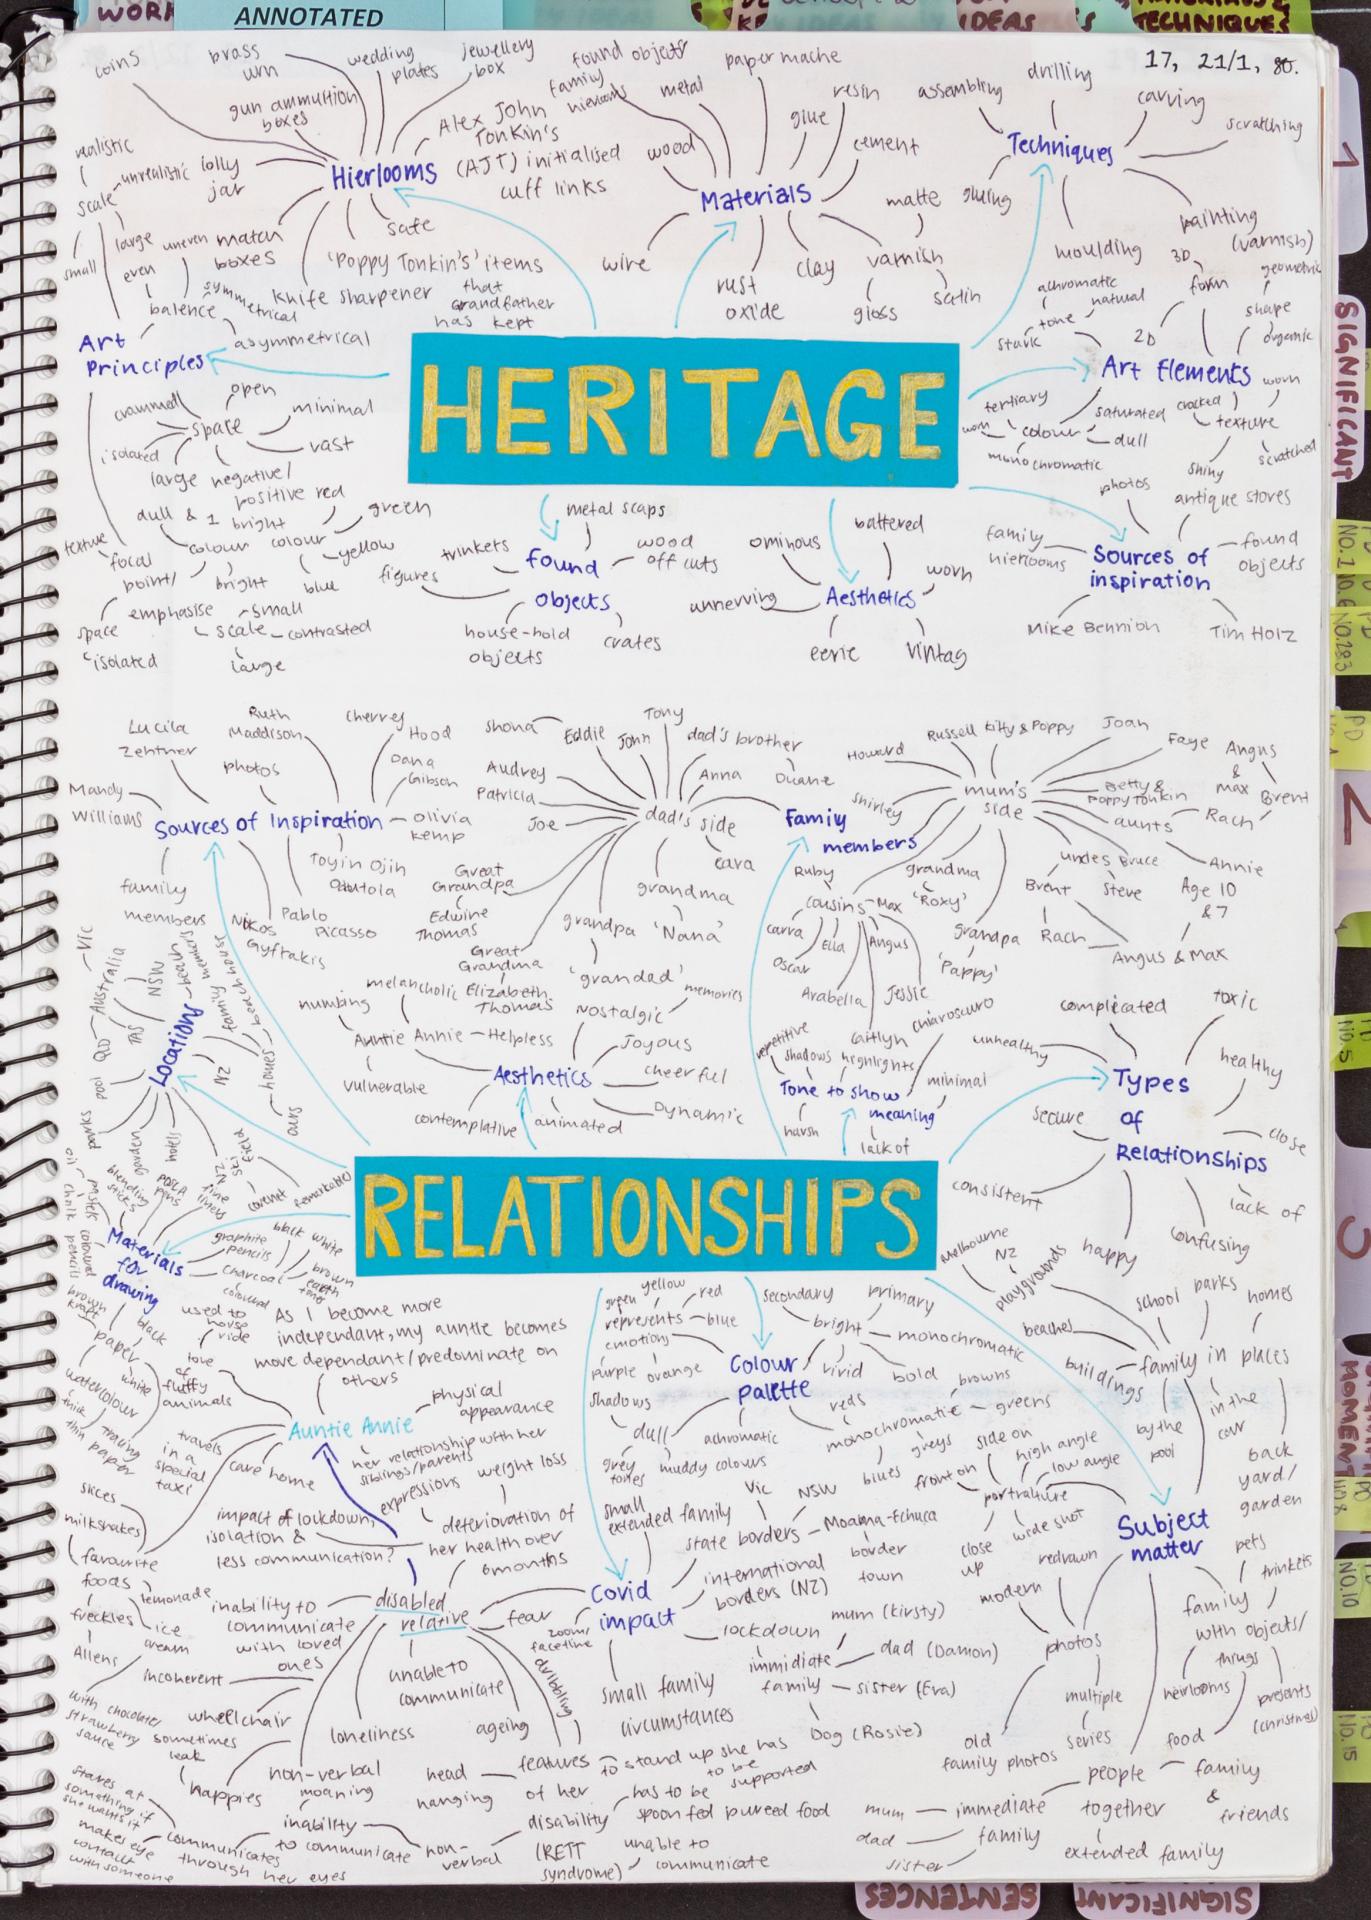 WORK
ANNOTATED
IDEAS
IDEAS
TECHNIQUES
17, 21/1, 80.
coins
brass
urn
wedding
plates
jewellery
box
gun ammunition
boxes
Alex John
Tonkin's
(AJT) initialised
cuff links
family
hierlooms
found objects
metal
paper mache
resin
glue
cement
wood
assembling
drilling
carving
scratching
Techniques
gluing
Hierlooms
Materials
realistic
scale
unrealistic
lolly
jar
small
large
uneven
even
match
boxes
safe
'Poppy Tonkin's' items
that
grandfather
has kept
knife sharpener
symmetrical
balence
asymmetrical
wire
rust
oxide
clay
matte
varnish
satin
gloss
moulding
painting
(varnish)
achromatic
natural
tone
stark
3D
form
2D
geometric
shape
organic
Art
Principles
HERITAGE
Art Elements
tertiary
colour
saturated
dull
monochromatic
cracked
worn
texture
scratched
shiny
open
crammed
space
minimal
isolated
vast
large
negative/
positive
red
dull & 1 bright
colour
colour
green
yellow
blue
bright
texture
focal
point/
emphasise
space
isolated
small
scale
contrasted
large
metal scaps
trinkets
found
objects
wood
off cuts
figures
house-hold
objects
crates
ominous
battered
worn
unnerving
Aesthetics
eerie
vintag
photos
antique stores
family
hierlooms
Sources of
inspiration
found
objects
Mike Bennion
Tim Holz
Lucila
Zentner
Ruth
Maddison
Cherrey
Hood
Dana
Gibson
photos
Mandy
Williams
Sources of Inspiration
olivia
kemp
Toyin Ojih
Odutola
family
members
Nikos
Gyftakis
Pablo
Picasso
Shona
Eddie
John
Tony
dad's brother
Duane
Anna
Audrey
Patricia
Joe
dad's side
cara
Great
Grandpa
Edwine
Thomas
grandma
'Nana'
grandpa
'grandad'
Great
Grandma
Elizabeth
Thomas
Famiy
members
Howard
Russell
kitty & Poppy
Joan
Faye
Angus
&
max
Brent
Rach
mum's
side
Betty &
Poppy Tonkin
aunts
Shirley
Annie
Age 10
& 7
uncles
Bruce
Steve
Brent
Rach
Angus & Max
Ruby
cousins
Max
carra
Oscar
Ella
Angus
Arabella
Jessie
Caitlyn
grandma
'Roxy'
grandpa
'Pappy'
Vic
Australia
NSW
QLD
TAS
Locations
beach
family members
beach house
homes
ours
NZ
pool
parks
garden
hotels
NZ
ski
field
remarkables
numbing
melancholic
Auntie Annie
Helpless
vulnerable
Nostalgic
memories
Joyous
cheerful
Aesthetics
Dynamic
contemplative
animated
repetitive
shadows
highlights
chiaroscuro
Tone to show
meaning
minimal
harsh
lack of
complicated
toxic
unhealthy
healthy
Types
of
Relationships
secure
close
consistent
lack of
happy
confusing
RELATIONSHIPS
oil
pastels
chalk
blending
sticks
fine
liners
Materials
for
drawing
coloured
pencils
graphite
pencils
charcoal
coloured
black
white
brown
earth
tones
brown
kraft
paper
black
white
watercolour
thick
tracing
thin paper
used to
horse
ride
love
of
fluffy
animals
As I become more
independant, my auntie becomes
move dependant/predominate on
others
Auntie Annie
physical
appearance
her relationship with her
siblings/parents
expressions
weight loss
travels
in a
special
taxi
care home
slices
milkshakes
favourite
foods
lemonade
freckles
ice
cream
Aliens
with chocolate/
strawberry
sauce
impact of lockdown,
isolation &
less communication?
deterioration of
her health over
6 months
disabled
relative
inability to
communicate
with loved
ones
incoherent
wheelchair
sometimes
leak
nappies
unable to
communicate
loneliness
ageing
dribbling
fear
non-verbal
moaning
head
hanging
features
of her
disability
(RETT
syndrome)
to stand up she has
to be
supported
has to be
spoon fed pureed food
unable to
communicate
inability
to communicate
non-
verbal
communicates
through her eyes
stares at
something if
she wants it
makes eye
contact
with someone
yellow
green
red
represents
blue
emotions
purple
orange
shadows
dull
grey
tones
muddy colours
achromatic
Colour
palette
secondary
primary
bright
monochromatic
vivid
bold
reds
browns
monochromatic
greens
greys
blues
small
extended family
Covid
impact
Vic
NSW
state borders
Moama-Echuca
border
town
international
borders (NZ)
lockdown
zoom/
facetime
small family
circumstances
immidiate
family
mum (Kirsty)
dad (Damon)
sister (Eva)
Dog (Rosie)
Melbourne
NZ
playgrounds
beaches
buildings
school
parks
homes
family in places
by the
pool
in the
car
back
yard/
garden
Subject
matter
side on
high angle
low angle
front on
portraiture
close
up
wide shot
redrawn
modern
photos
multiple
series
old
family photos
pets
trinkets
family
with objects/
things
heirlooms
presents
(christmas)
food
people
together
family
&
friends
mum
dad
sister
immediate
family
extended family
1
SIGNIFICANT
NO.283
2
NO.5
3
MOMENT
NO.10
NO.15
SENTENCES
SIGNIFICANT